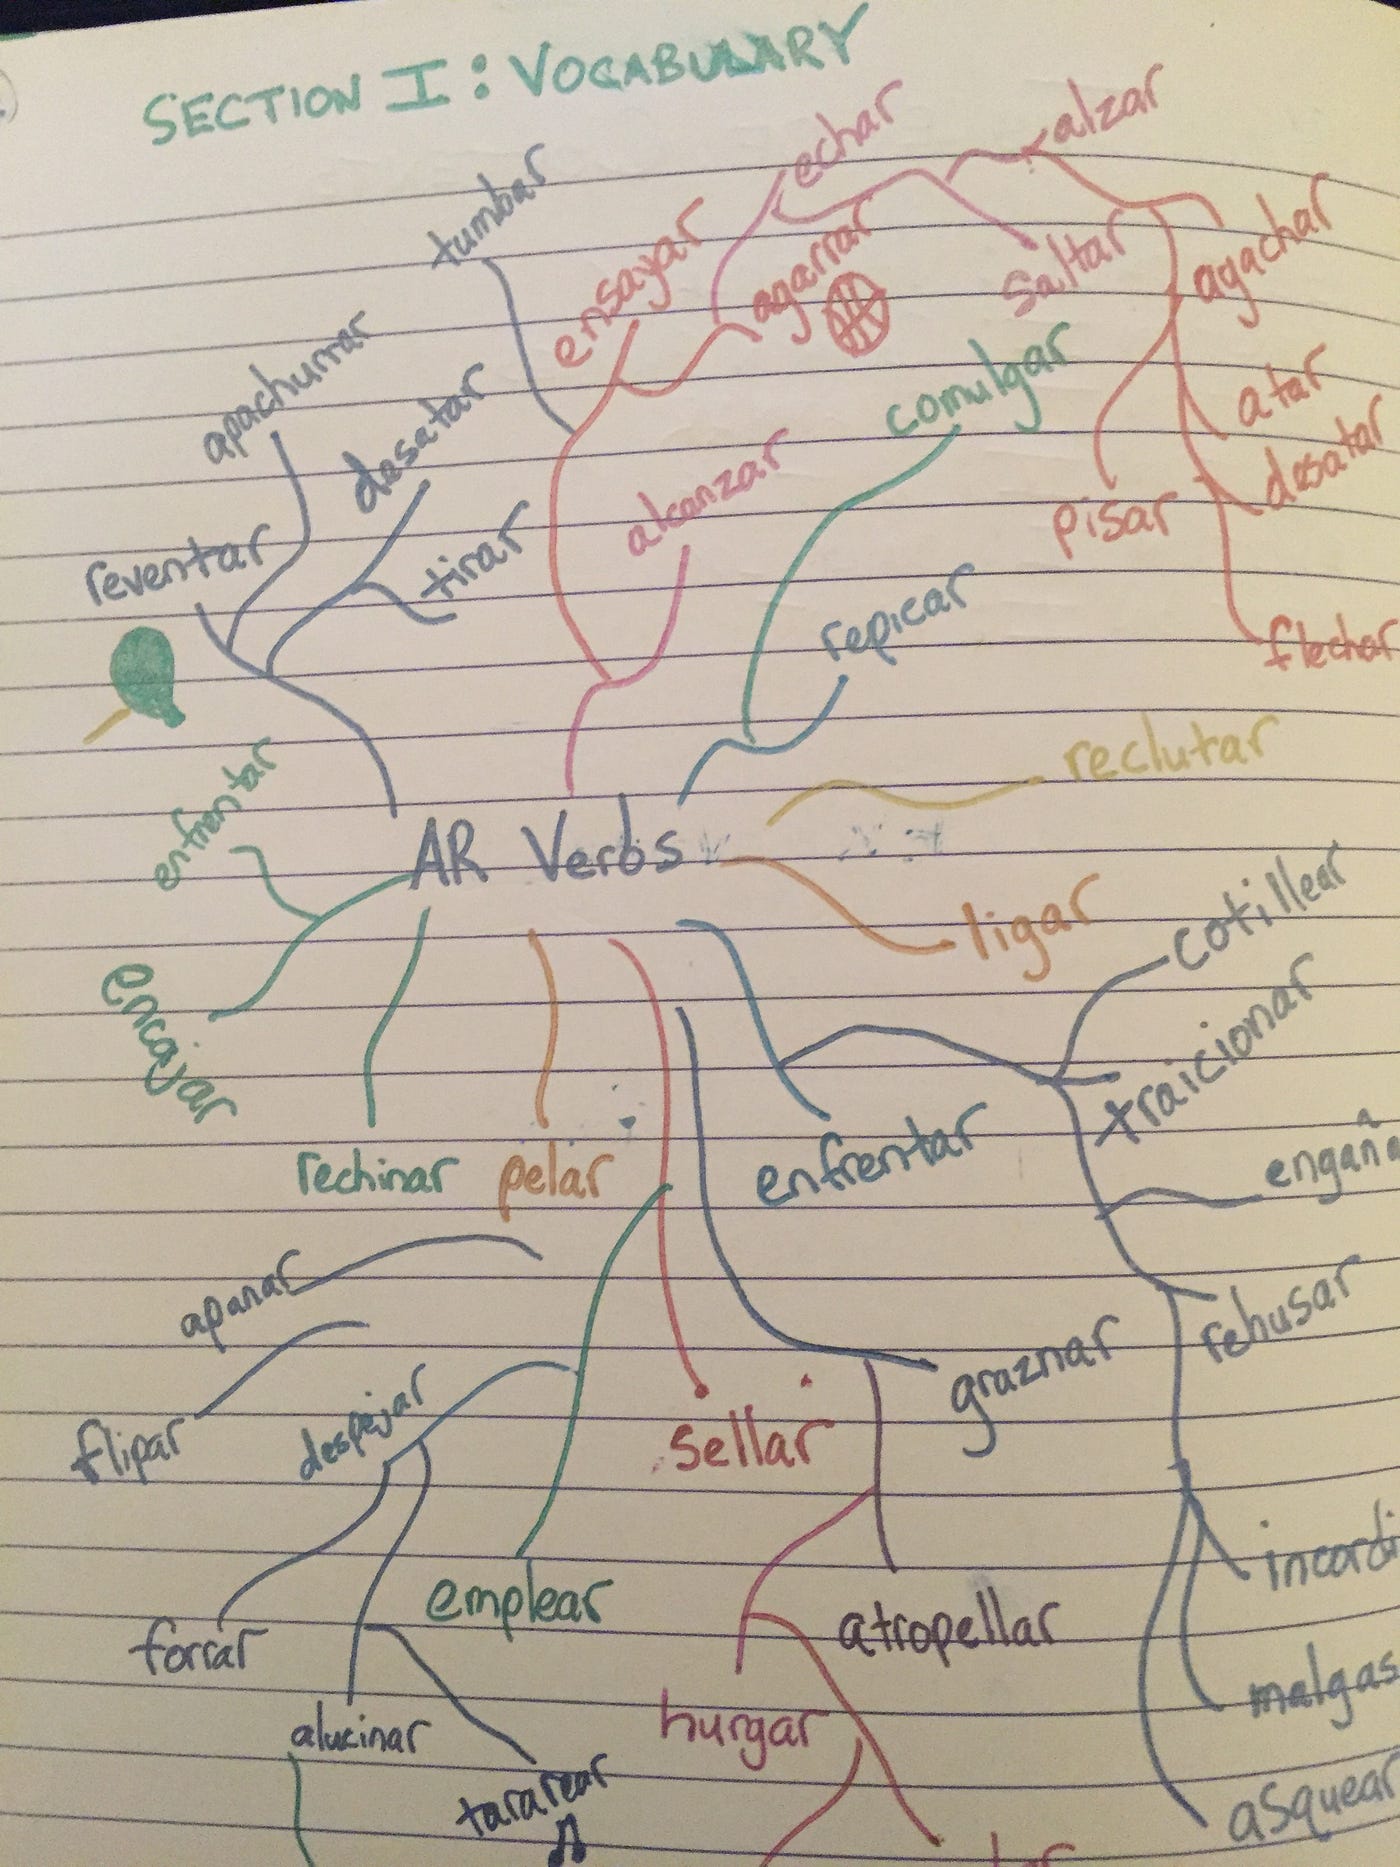 SECTION I: VOCABULARY
echar
alzar
tumbar
ensayar
agarrar
saltar
agachar
apachurrar
desatar
comulgar
atar
alcanzar
desatar
reventar
tirar
pisar
repicar
flechar
enfrentar
reclutar
AR Verbs
ligar
cotillear
encajar
traicionar
rechinar
pelar
enfrentar
engaña
apanar
rehusar
flipar
despejar
graznar
sellar
incordi
emplear
atropellar
forrar
malgas
hurgar
alucinar
asquear
tararear